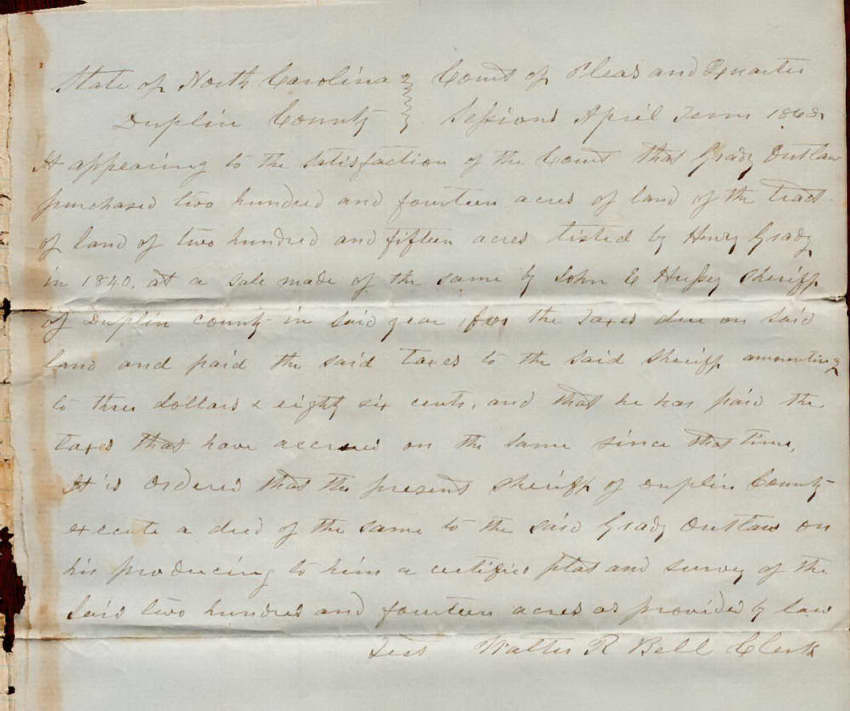 State of North Carolina } Court of Pleas and Quarter
Duplin County } Sessions April Term 1848.
It appearing to the satisfaction of the Court that Grady Outlaw
purchased two hundred and fourteen acres of land of the tract
of land of two hundred and fifteen acres listed by Henry Grady
in 1840. at a sale made of the same by John E Hussey Sheriff
of Duplin county in said year, for the Taxes due on said
land and paid the said taxes to the said Sheriff amounting
to three dollars & eighty six cents, and that he has paid the
taxes that have accrued on the same since that time,
It is ordered that the present Sheriff of Duplin County
execute a deed of the same to the said Grady Outlaw on
his producing to him a certified plat and survey of the
said two hundred and fourteen acres as provided by law
Test Walter R Bell Clerk